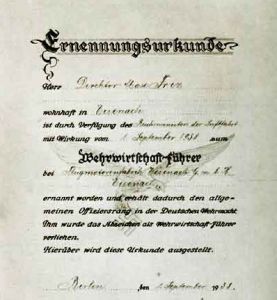 Ernennungsurkunde
Herr Direktor
wohnhaft in Eisenach
ist durch Verfügung des Reichsministers der Luftfahrt
mit Wirkung vom 1. September 1938 zum
Wehrwirtschaft-Führer
bei Flugmotorenfabrik Eisenach G.m.b.H.
Eisenach
ernannt worden und erhält dadurch den allge-
meinen Offiziersrang in der Deutschen Wehrmacht.
Ihm wurde das Abzeichen als Wehrwirtschaft-Führer
verliehen.
Hierüber wird diese Urkunde ausgestellt.
Berlin den September 1938.